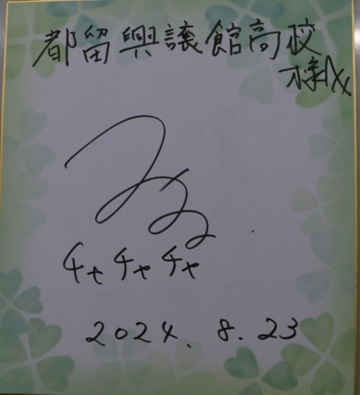 都留興譲館高校
様
チャチャチャ
2024. 8. 23